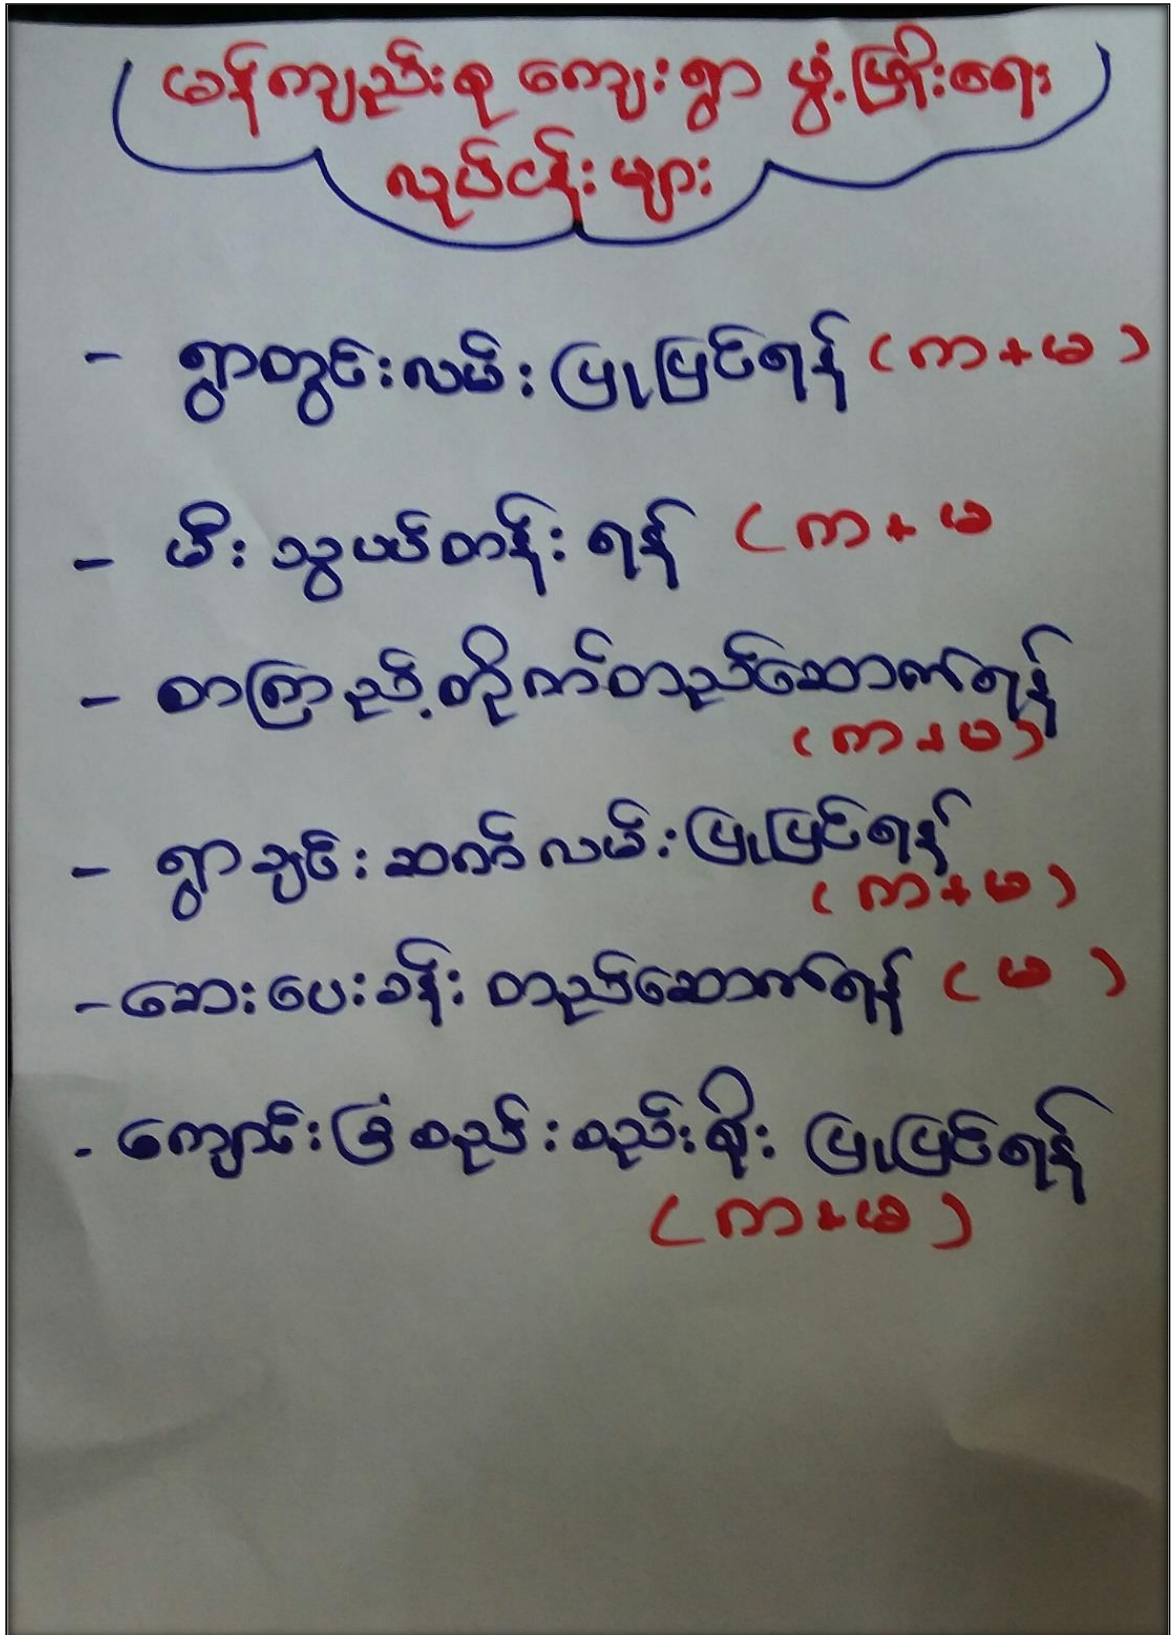 မန်ကျည်းစု ကျေးရွာ ဖွံ့ဖြိုးရေး
လုပ်ငန်းများ
- ရွာတွင်းလမ်း ပြုပြင်ရန် (ကာ + မ)
- မီး သွယ်တန်း ရန် (ကာ + မ
- စာကြည့်တိုက်တည်ဆောက်ရန်
(ကာ + မ)
- ရွာချင်းဆက်လမ်း ပြုပြင်ရန်
(ကာ + မ)
- ဆေးပေးခန်း တည်ဆောက်ရန် (မ)
- ကျောင်းခြံစည်းစည်းရိုး ပြုပြင်ရန်
(ကာ + မ)